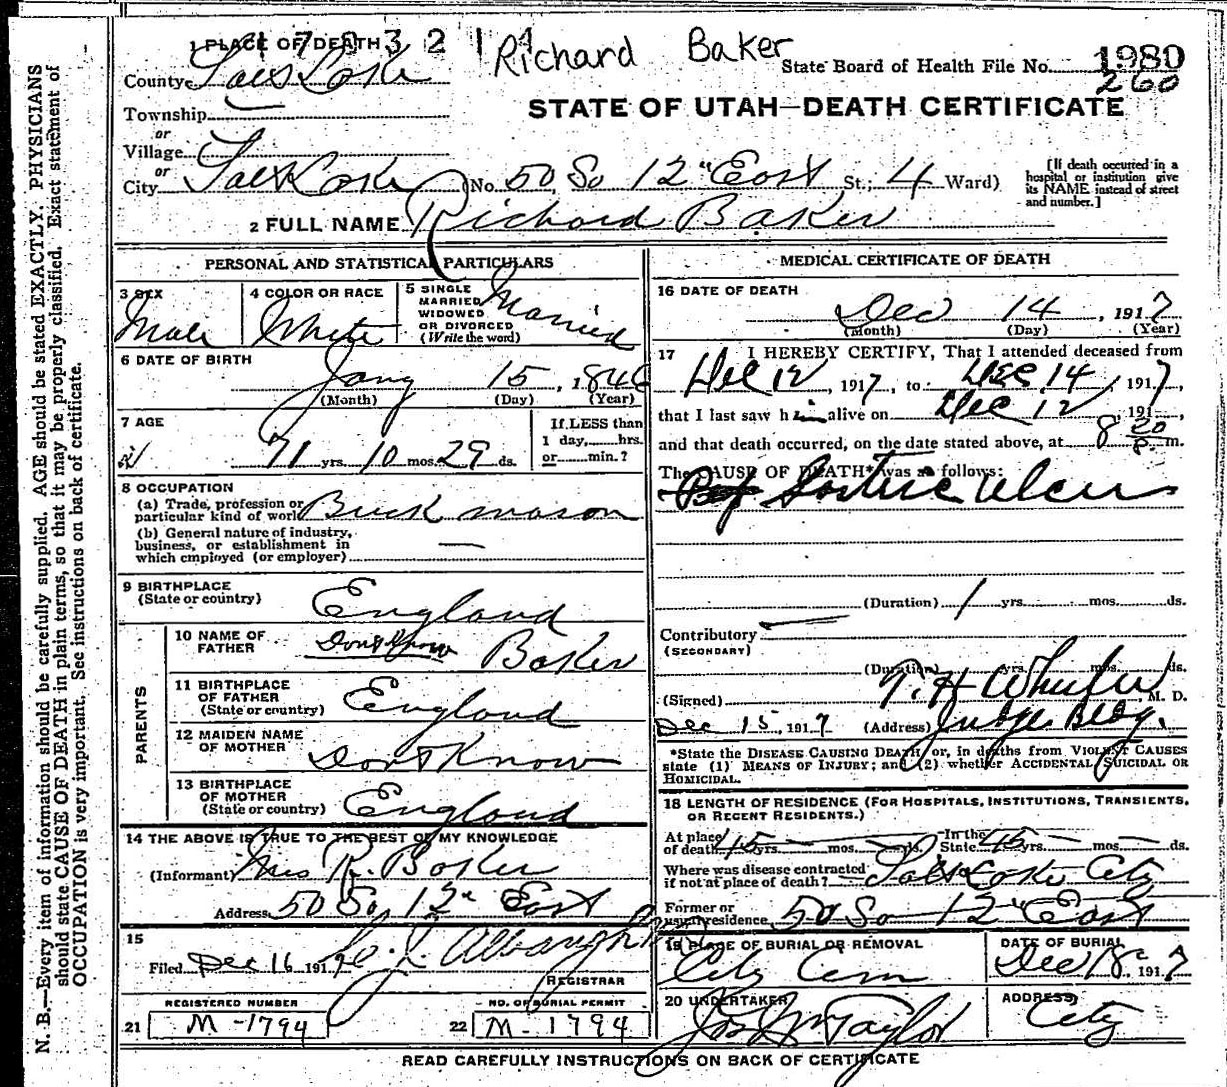 1 PLACE OF DEATH
Richard Baker
State Board of Health File No. 1980
260
County Salt Lake
STATE OF UTAH—DEATH CERTIFICATE
Township
or
Village
or
City Salt Lake (No. 50 So 12" East St.; 4 Ward)
[If death occurred in a hospital or institution give its NAME instead of street and number.]
2 FULL NAME Richard Baker
PERSONAL AND STATISTICAL PARTICULARS
3 SEX
Male
4 COLOR OR RACE
White
5 SINGLE
MARRIED
WIDOWED
OR DIVORCED
(Write the word)
Married
6 DATE OF BIRTH
Jany 15, 1846
(Month) (Day) (Year)
7 AGE
71 yrs. 10 mos. 29 ds.
If LESS than
1 day,......hrs.
or......min.?
8 OCCUPATION
(a) Trade, profession or
particular kind of work Brick mason
(b) General nature of industry,
business, or establishment in
which employed (or employer) —
9 BIRTHPLACE
(State or country) England
PARENTS
10 NAME OF
FATHER Dont Know Baker
11 BIRTHPLACE
OF FATHER
(State or country) England
12 MAIDEN NAME
OF MOTHER Dont Know
13 BIRTHPLACE
OF MOTHER
(State or country) England
14 THE ABOVE IS TRUE TO THE BEST OF MY KNOWLEDGE
(Informant) Mrs R. Baker
Address 50 So, 12" East
15
Filed Dec 16 191
REGISTRAR
REGISTERED NUMBER
21 M-1794
NO. OF BURIAL PERMIT
22 M-1794
MEDICAL CERTIFICATE OF DEATH
16 DATE OF DEATH
Dec 14, 1917
(Month) (Day) (Year)
17 I HEREBY CERTIFY, That I attended deceased from
Dec 12, 1917, to Dec 14, 1917,
that I last saw him alive on Dec 12, 191 ,
and that death occurred, on the date stated above, at 8 20 P. m.
The CAUSE OF DEATH* was as follows:
Gastric Ulcer
(Duration) 1 yrs. mos. ds.
Contributory
(SECONDARY)
(Duration) yrs. mos. ds.
(Signed) M. D.
Dec 15, 1917 (Address) Judge Bldg.
*State the DISEASE CAUSING DEATH, or, in deaths from VIOLENT CAUSES
state (1) MEANS OF INJURY; and (2) whether ACCIDENTAL, SUICIDAL OR
HOMICIDAL.
18 LENGTH OF RESIDENCE (FOR HOSPITALS, INSTITUTIONS, TRANSIENTS,
OR RECENT RESIDENTS.)
At place
of death 45 yrs. — mos. — ds.
In the
State 45 yrs. — mos. — ds.
Where was disease contracted
if not at place of death? Salt Lake City
Former or
usual residence 50 So 12" East
19 PLACE OF BURIAL OR REMOVAL
City Cem
DATE OF BURIAL
Dec 18, 1917
20 UNDERTAKER
Taylor
ADDRESS
City
READ CAREFULLY INSTRUCTIONS ON BACK OF CERTIFICATE
N. B.—Every item of information should be carefully supplied. AGE should be stated EXACTLY. PHYSICIANS
should state CAUSE OF DEATH in plain terms, so that it may be properly classified. Exact statement of
OCCUPATION is very important. See instructions on back of certificate.